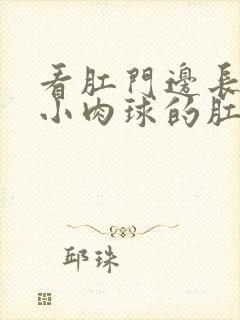 看肛門邊長
小肉球的肛
邱珠